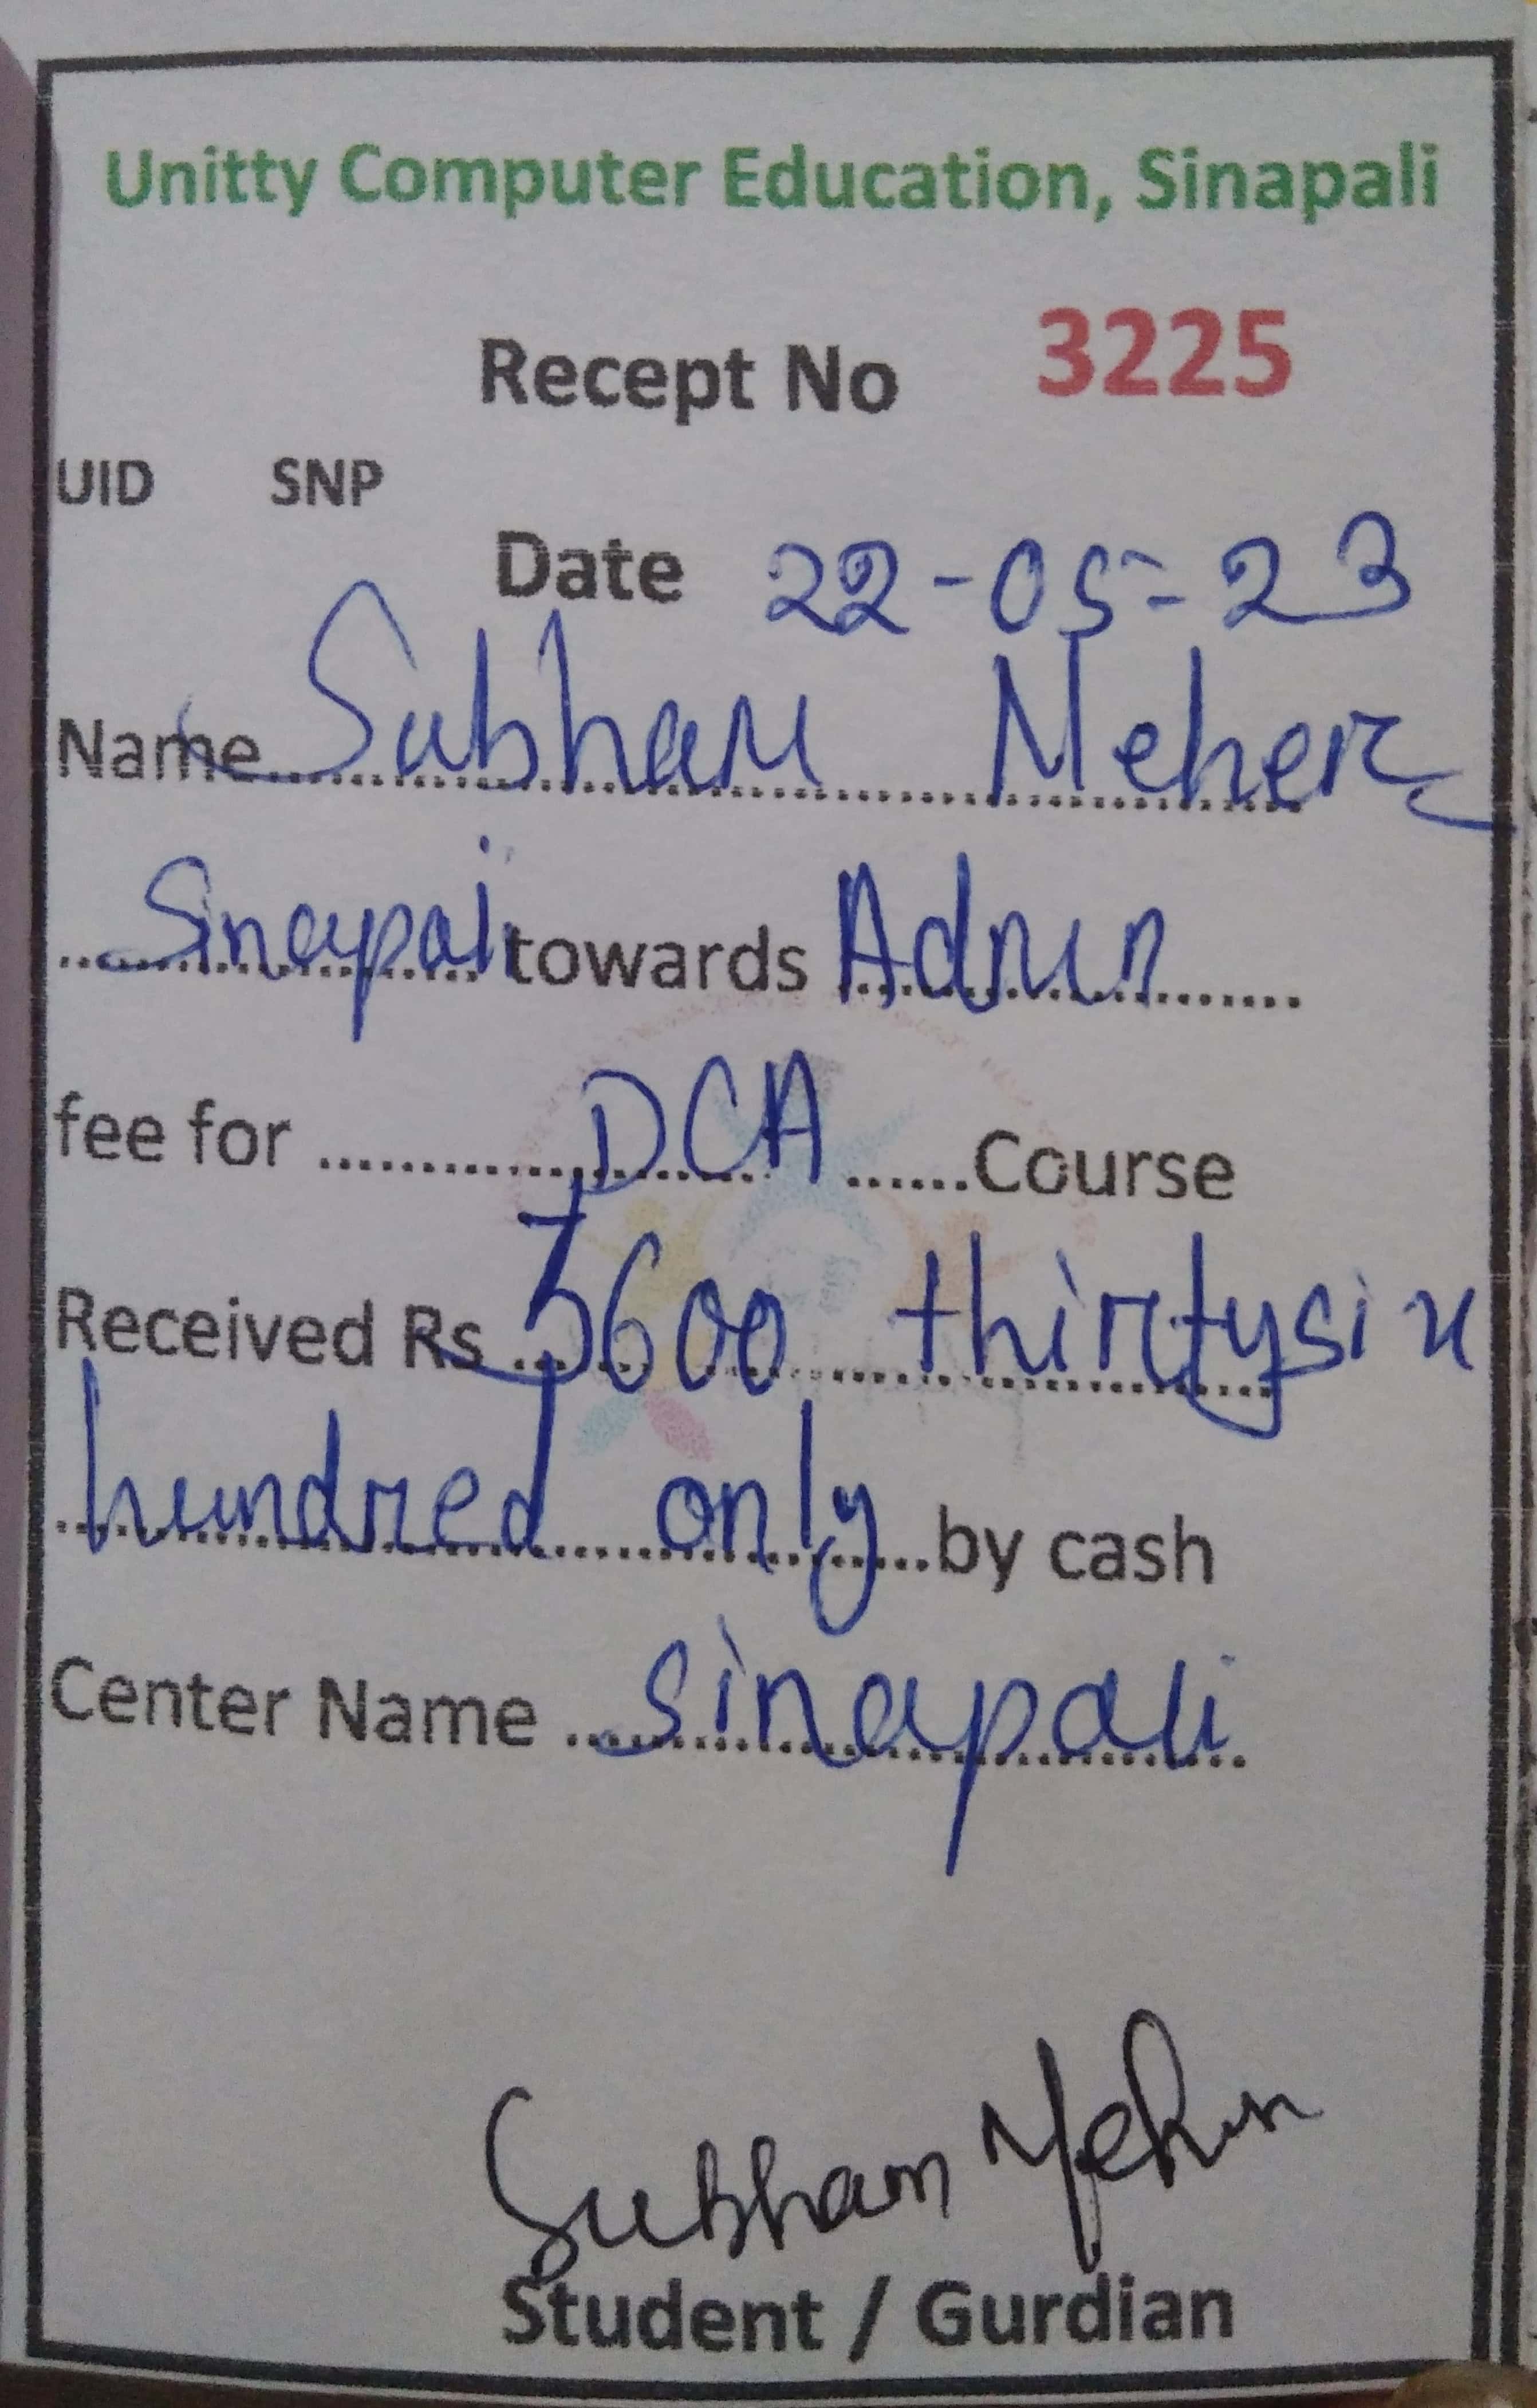 Unitty Computer Education, Sinapali
Recept No 3225
UID SNP
Date 22-05-23
Name Subham Meher
Sinapali towards Admn
fee for DCA Course
Received Rs 3600 thirtysix
hundred only by cash
Center Name Sinapali
Subham Meher
Student / Gurdian